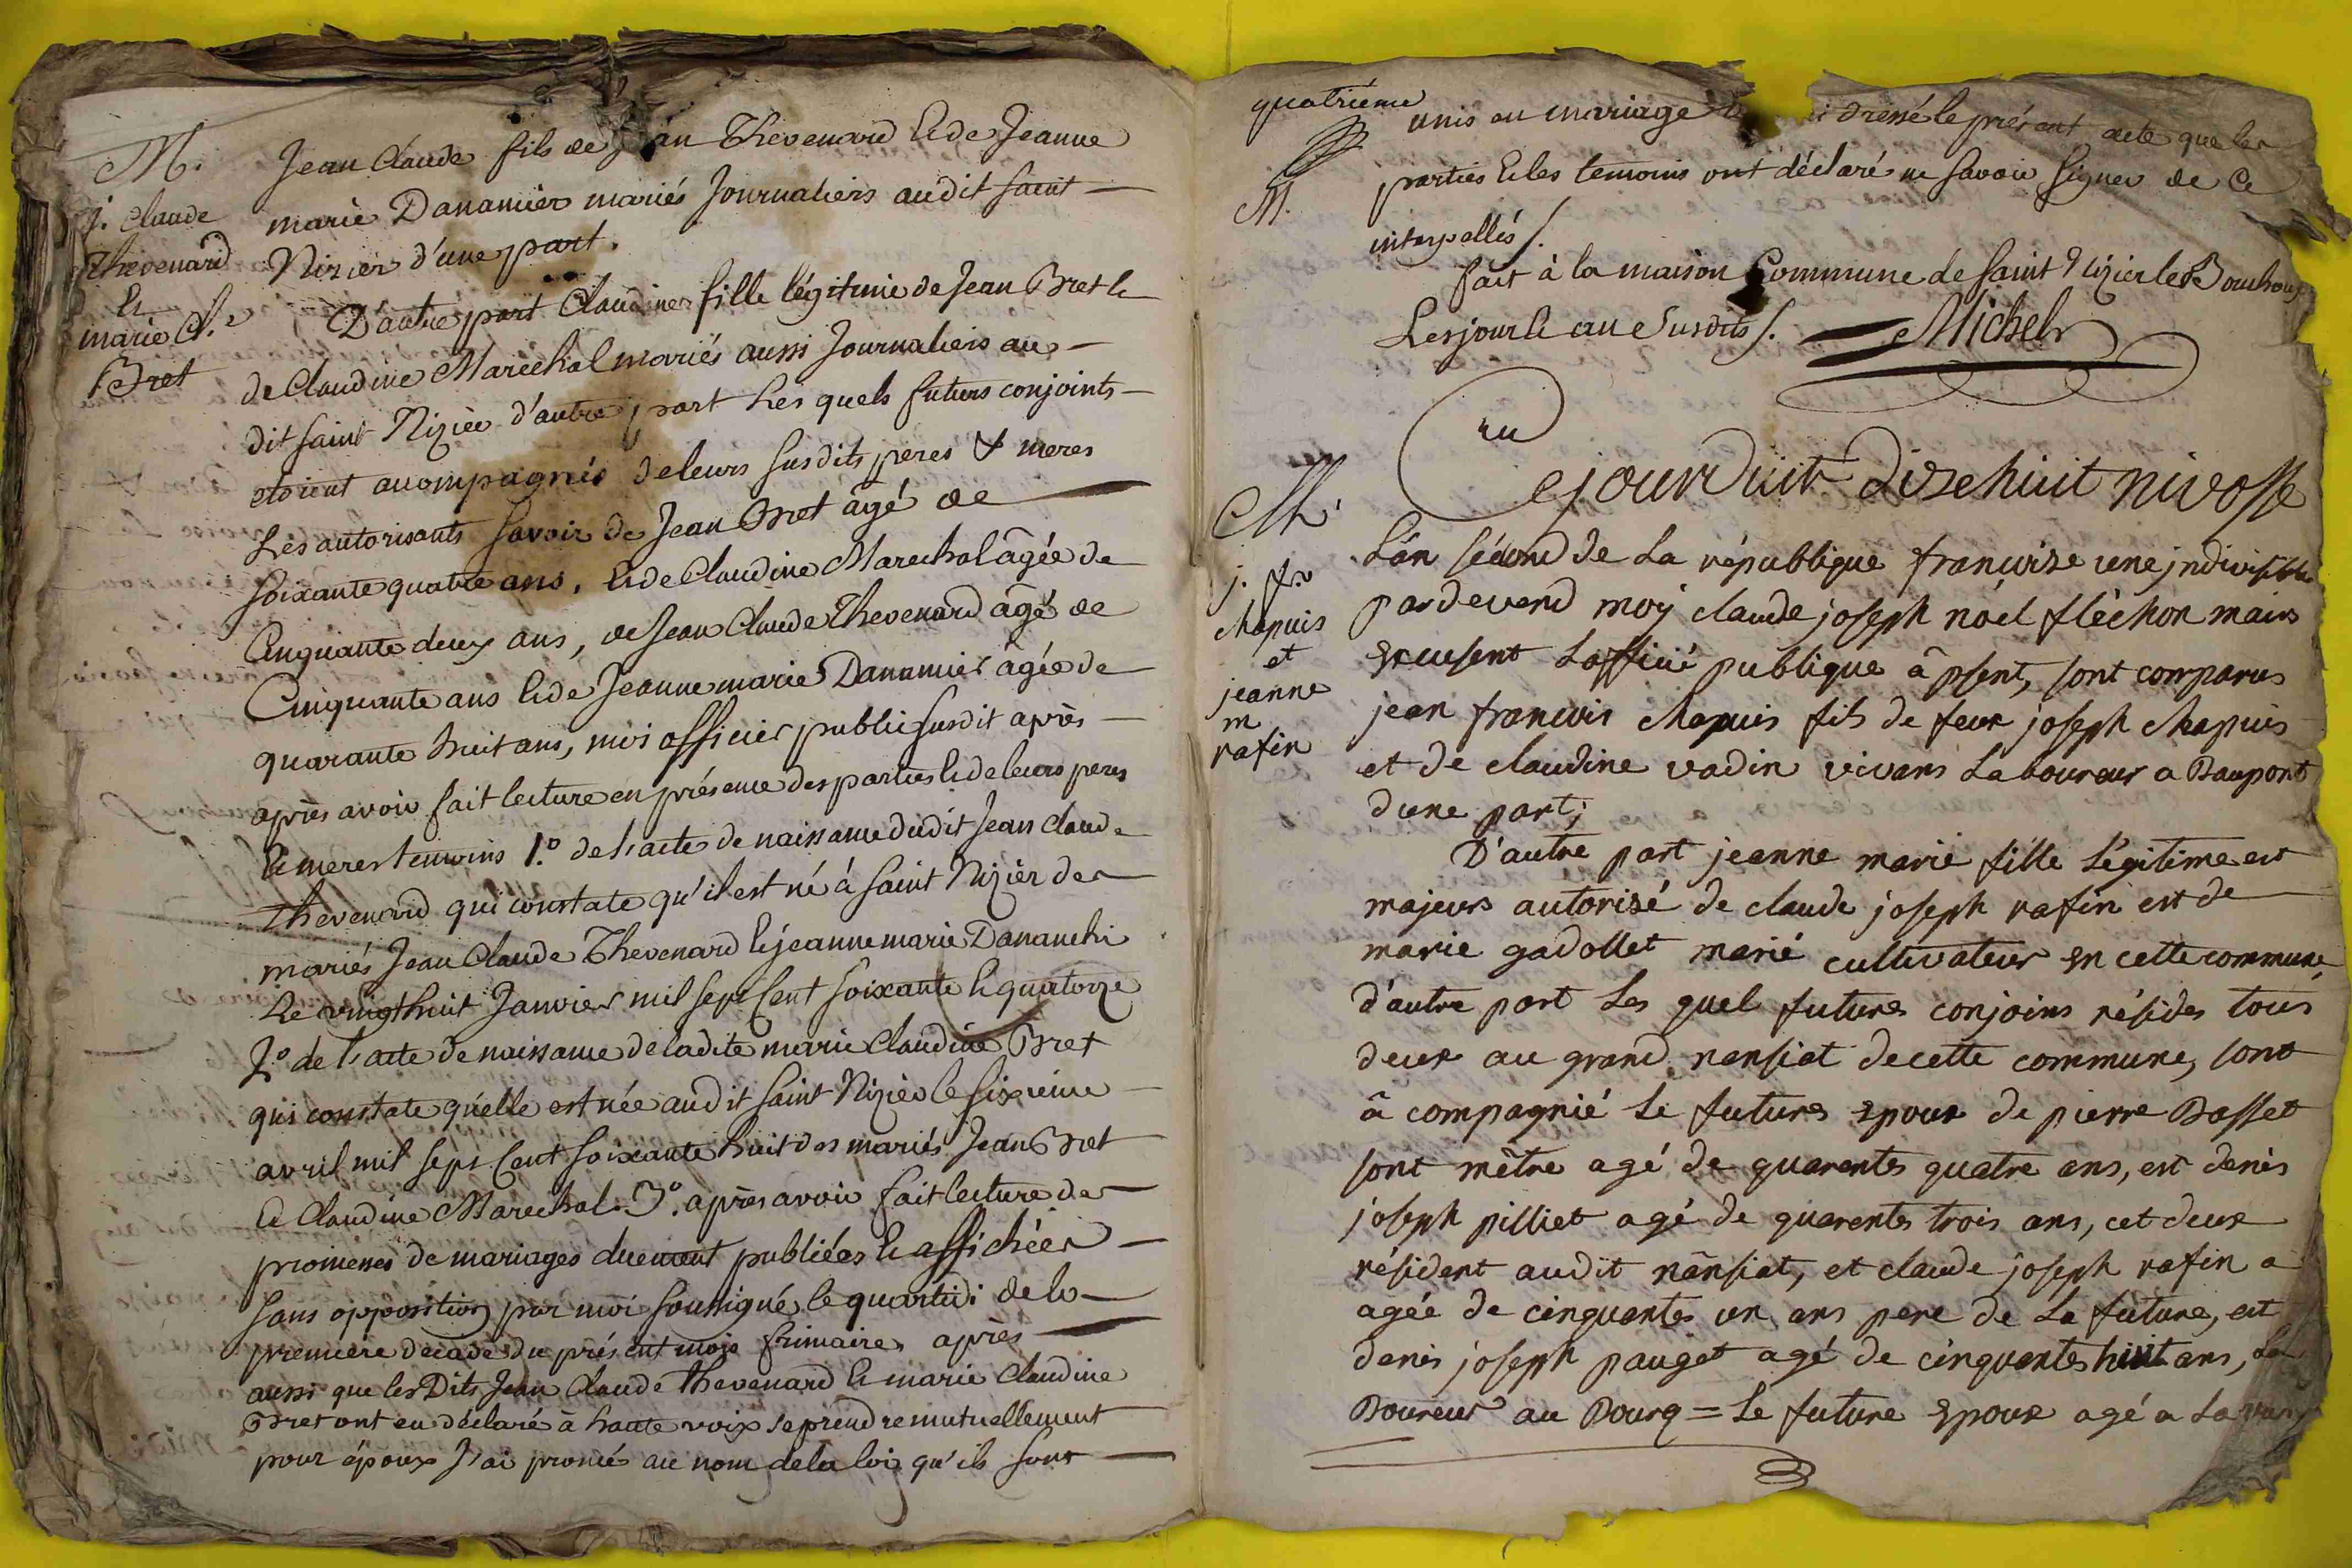 M.
j. Claude
Thevenard
&
marie Cl.e
Bret
Jean Claude fils de Jean Thevenard & de Jeanne
marie Dananier mariés Journaliers audit Saint
Nizier d'une part.
D'autre part Claudine fille légitime de Jean Bret &
de Claudine Marechal mariés aussi Journaliers au
dit Saint Nizier d'autre part Les quels futurs conjoints
etoient accompagnés de leurs susdits peres & meres
Les autorisants Savoir de Jean Bret âgé de
soixante quatre ans, & de Claudine Marechal âgée de
Cinquante deux ans, de Jean Claude Thevenard âgé de
Cinquante ans & de Jeanne marie Dananier âgée de
quarante huit ans, moi officier public susdit après
après avoir fait lecture en présence des parties & de leurs peres
& meres temoins 1.o de l'acte de naissance dudit Jean Claude
Thevenard qui constate qu'il est né à Saint Nizier des
mariés Jean Claude Thevenard & jeanne marie Dananchi
Le vingt huit Janvier mil sept Cent soixante & quatorze
2.o de l'acte de naissance de ladite marie Claudine Bret
qui constate qu'elle est née audit Saint Nizier le sixieme
avril mil sept Cent soixante huit des mariés Jean Bret
& Claudine Marechal. 3.o après avoir fait lecture des
promesses de mariages duement publiées & affichées
sans opposition par moi soussigné le quartidi de la
première décade du présent mois frimaire, après
aussi que les Dits Jean Claude Thevenard & marie Claudine
Bret ont eu déclaré à haute voix se prendre mutuellement
pour époux J'ai proncé au nom de la loi qu'ils sont
quatrième
M.
unis en mariage dressé le présent acte que les
parties & les temoins ont déclaré ne savoir signer de ce
interpellés /.
fait à la maison Commune de Saint Nizier le Bouchoux
Les jour & an susdits /. Michel
M.
j. fr.
chapuis
et
jeanne
m
rafin
Cejourduit dizehuit nivosse
L'an second de La république francoise une jndivisible
pardevend moy claude joseph noel fléchon maire
Excusent Lofficié publique â psent, sont comparus
jean francois chapuis fils de feux joseph chapuis
et de claudine vadin vivans Laboureur a Baupont
dune part;
D'autre part jeanne marie fille Légitime est
majeurs autorisé de claude joseph rafin est de
marie gadollet marié cultivateur en cette commune,
d'autre part Les quel futures conjoins résides tous
deux au grand nansiat decette commune, sont
â compagnié Le futures Epoux de pierre Basset
sont mêtre agé de quarentes quatre ans, est denis
joseph pilliet agé de quarentes trois ans, cet deux
résident audit nânsiat, et claude joseph rafin a
agée de cinquantes un ans pere de La future, est
denis joseph pauget agé de cinquantes huit ans, La
Boureur au Bourq = Le future Epoux agé a La